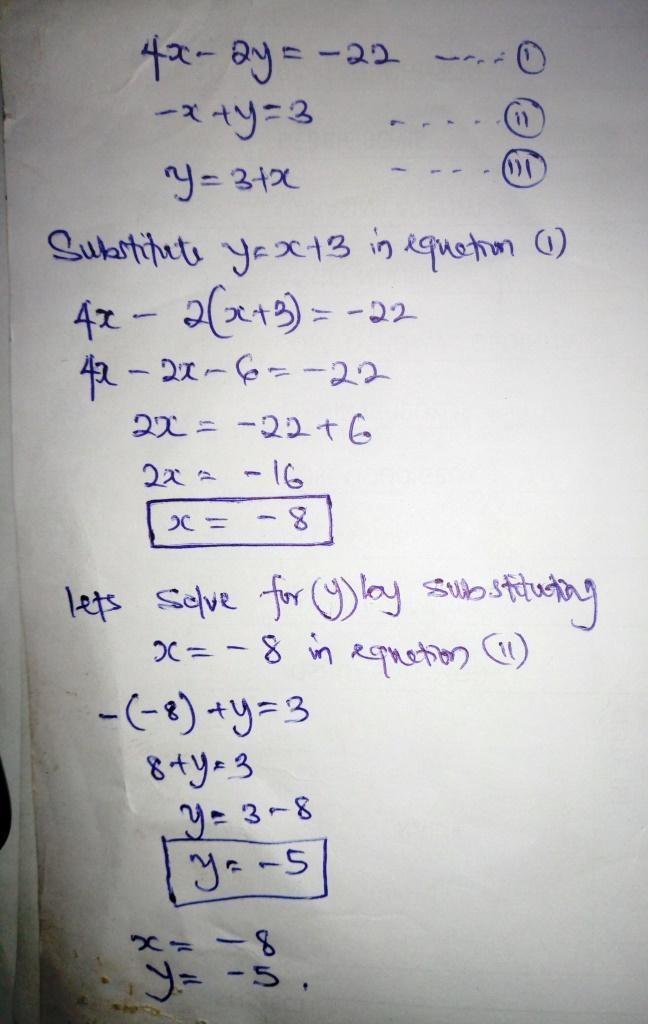 4x - 2y = -22 ----- (i)
-x + y = 3 ----- (ii)
y = 3+x ---- (iii)
Substitute y=x+3 in equation (i)
4x - 2(x+3) = -22
4x - 2x - 6 = -22
2x = -22 + 6
2x = -16
x = -8
lets solve for (y) by substituting
x = -8 in equation (ii)
-(-8) + y = 3
8+y=3
y = 3-8
y = -5
x = -8
y = -5.